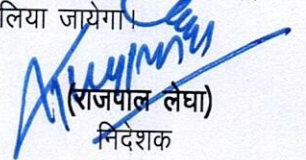 लिया जायेगा।
(राजपाल लेघा)
निदेशक